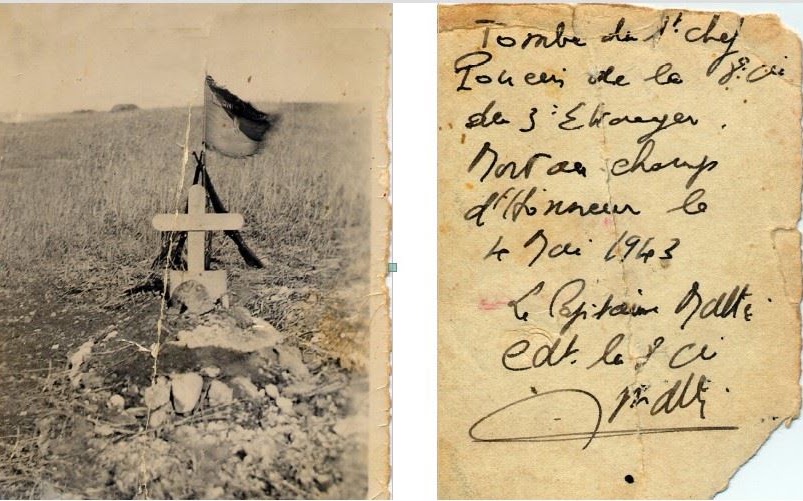 Tombe du Sᵗ chef
Poncin de la 8ᵉ Cie
du 3ᵉ Etranger.
Mort au champ
d'Honneur le
4 Mai 1943
Le Capitaine
Cdt. la 8 Cie